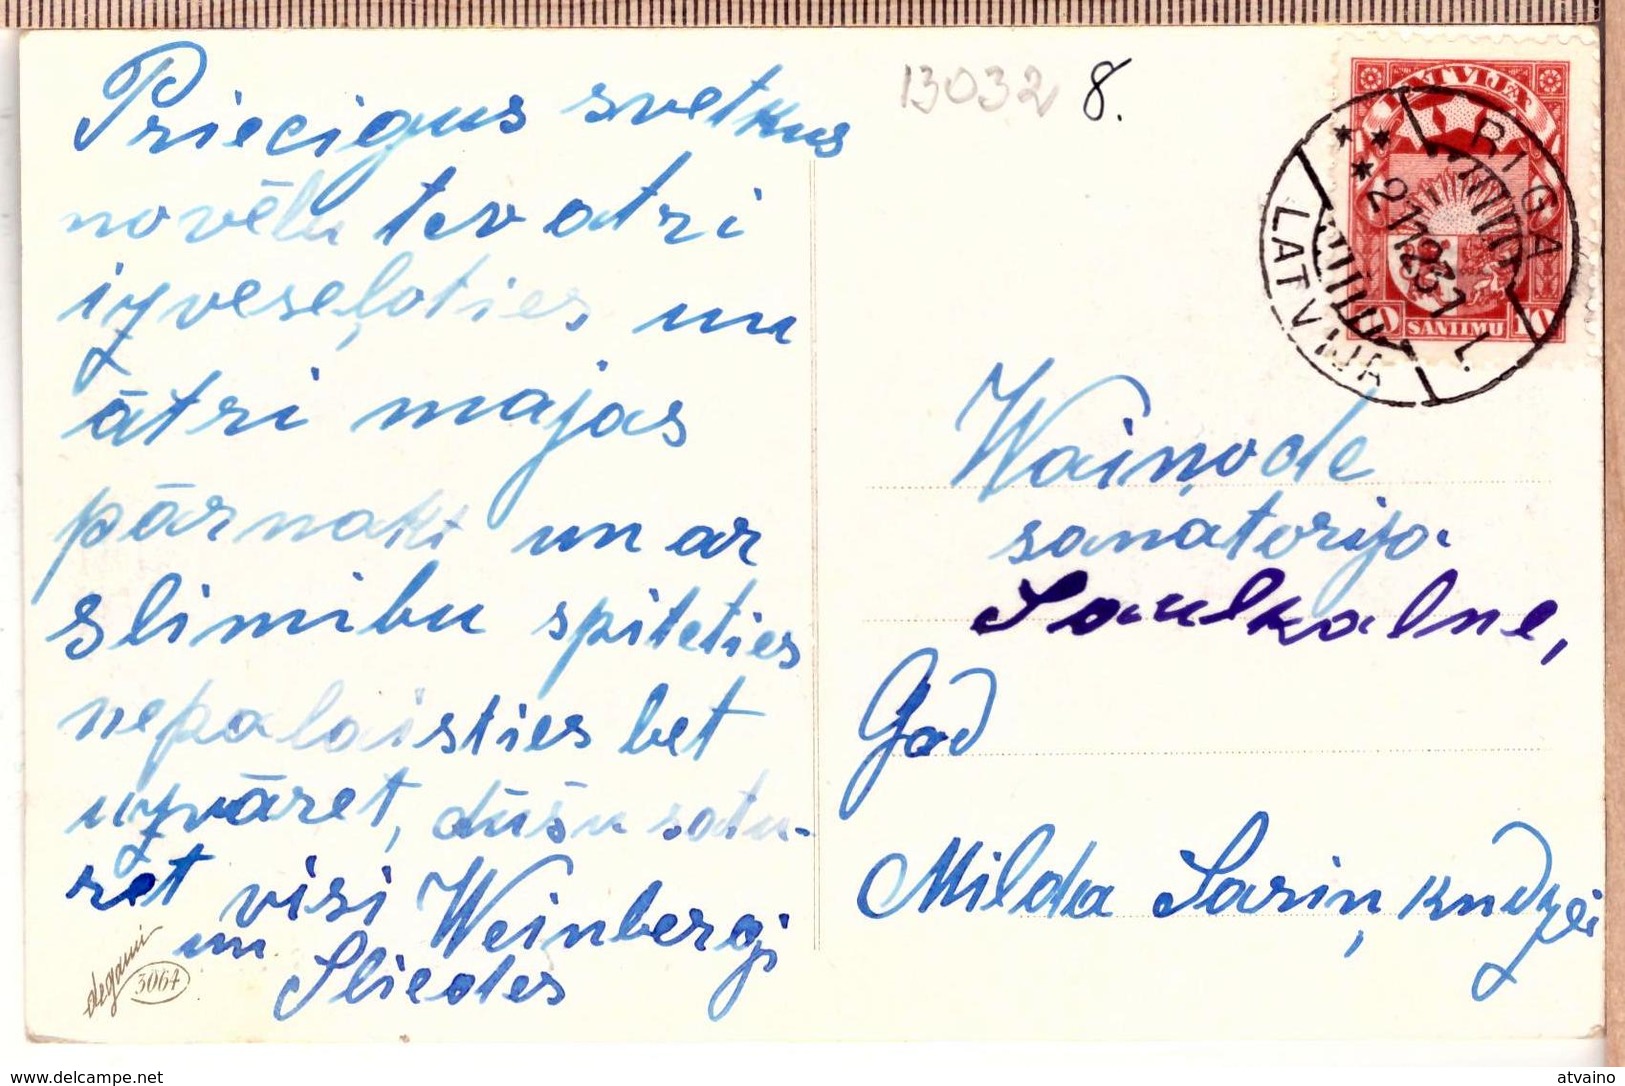 Priecigus svetkus
novēlu tev atri
izveseļoties un
ātri majas
pārnakt un ar
slimibu spiteties
nepalaisties bet
uzvāret, dūšu satu-
ret visi Weinbergi
un Sliedes
degami
3064
13032 8.
LATVIJA
10 SANTIMU 10
RIGA
21 12 31
L.
LATVIJA
Waiņode
sanatorija.
Saulkalne,
Gad
Milda Sariņ kundzei
delcampe.net
atvaino